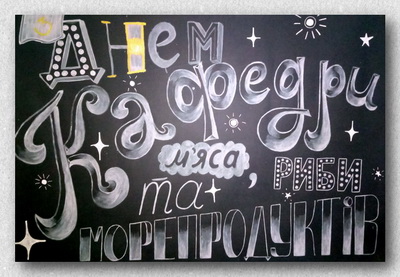 Днем
Кафедри
м'яса, РИБИ
та
МОРЕПРОДУКТІВ